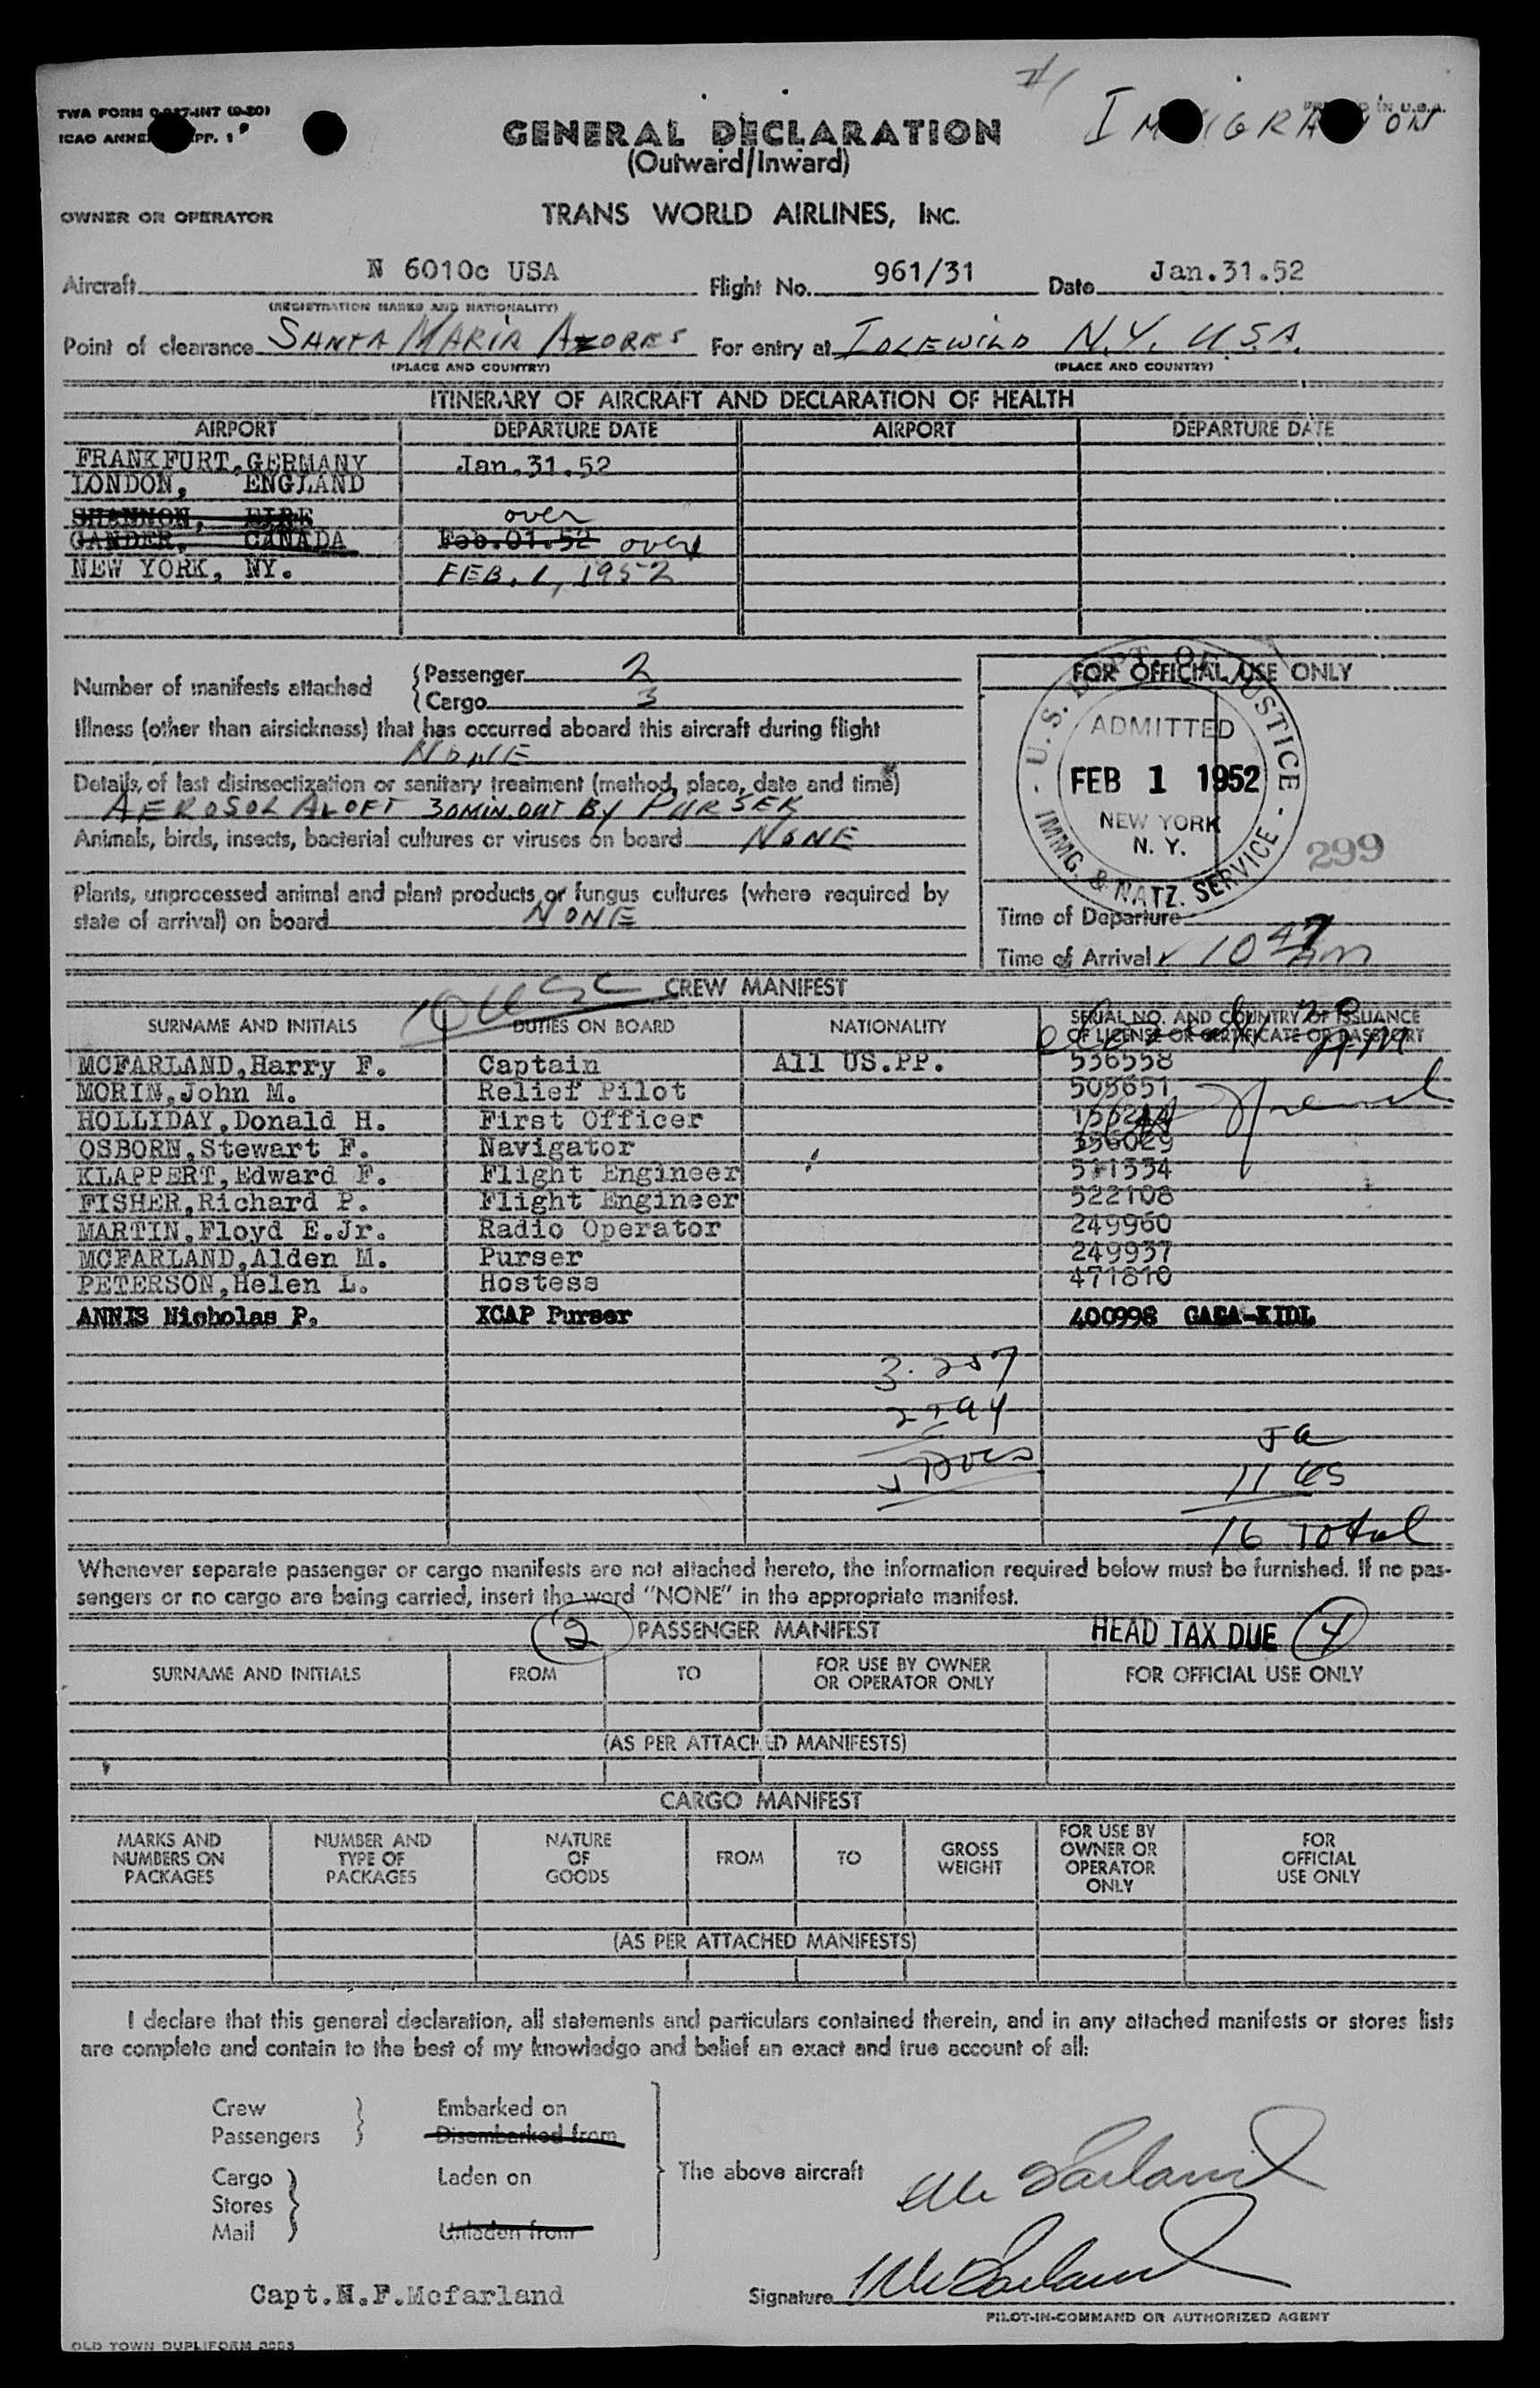 #1
TWA FORM INT (9-50)
IMMIGRATION
IN U.S.A.
ICAO ANNEX APP. 1
GENERAL DECLARATION
(Outward/Inward)
OWNER OR OPERATOR
TRANS WORLD AIRLINES, INC.
Aircraft N 6010c USA Flight No. 961/31 Date Jan.31.52
(REGISTRATION MARKS AND NATIONALITY)
Point of clearance SANTA MARIA AZORES For entry at IDLEWILD N.Y. U.S.A.
(PLACE AND COUNTRY) (PLACE AND COUNTRY)
ITINERARY OF AIRCRAFT AND DECLARATION OF HEALTH
AIRPORT DEPARTURE DATE AIRPORT DEPARTURE DATE
FRANKFURT,GERMANY Jan.31.52
LONDON, ENGLAND
SHANNON, EIRE over
GANDER, CANADA Feb.01.52 over
NEW YORK, NY. FEB. 1, 1952
Number of manifests attached
Passenger 2
Cargo 3
Illness (other than airsickness) that has occurred aboard this aircraft during flight
NONE
Details of last disinsectization or sanitary treatment (method, place, date and time)
AEROSOL ALOFT 30MIN.OUT BY PURSER
Animals, birds, insects, bacterial cultures or viruses on board NONE
Plants, unprocessed animal and plant products or fungus cultures (where required by
state of arrival) on board NONE
FOR OFFICIAL USE ONLY
U.S. DEPT. OF JUSTICE
ADMITTED
FEB 1 1952
NEW YORK
N. Y.
IMMG. & NATZ. SERVICE
299
Time of Departure
Time of Arrival 10 47 AM
10 USC
CREW MANIFEST
SURNAME AND INITIALS DUTIES ON BOARD NATIONALITY SERIAL NO. AND COUNTRY OF ISSUANCE
OF LICENSE OR CERTIFICATE OR PASSPORT
MCFARLAND,Harry F. Captain All US.PP. 536558
MORIN,John M. Relief Pilot 505651
HOLLIDAY,Donald H. First Officer
OSBORN,Stewart F. Navigator 336029
KLAPPERT,Edward F. Flight Engineer 511334
FISHER,Richard P. Flight Engineer 522108
MARTIN,Floyd E.Jr. Radio Operator 249960
MCFARLAND,Alden M. Purser 249937
PETERSON,Helen L. Hostess 471810
ANNIS Nicholas P. XCAP Purser 400998 GASA-KIDL
3. 257
2 294
5 Docs
5 a
11 US
16 Total
Whenever separate passenger or cargo manifests are not attached hereto, the information required below must be furnished. If no pas-
sengers or no cargo are being carried, insert the word "NONE" in the appropriate manifest.
2 PASSENGER MANIFEST HEAD TAX DUE 4
SURNAME AND INITIALS FROM TO FOR USE BY OWNER
OR OPERATOR ONLY FOR OFFICIAL USE ONLY
(AS PER ATTACHED MANIFESTS)
CARGO MANIFEST
MARKS AND
NUMBERS ON
PACKAGES
NUMBER AND
TYPE OF
PACKAGES
NATURE
OF
GOODS
FROM
TO
GROSS
WEIGHT
FOR USE BY
OWNER OR
OPERATOR
ONLY
FOR
OFFICIAL
USE ONLY
(AS PER ATTACHED MANIFESTS)
I declare that this general declaration, all statements and particulars contained therein, and in any attached manifests or stores lists
are complete and contain to the best of my knowledge and belief an exact and true account of all:
Crew Embarked on
Passengers Disembarked from
The above aircraft McFarland
Cargo Laden on
Stores
Mail Unladen from
Capt.H.F.Mcfarland Signature McFarland
PILOT-IN-COMMAND OR AUTHORIZED AGENT
OLD TOWN DUPLIFORM